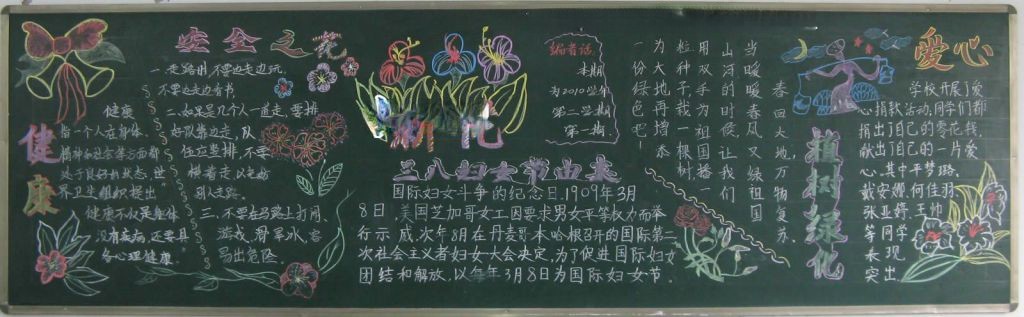 健康
健康
指一个人在身体、
精神和社会等方面都
处于良好的状态,世
界卫生组织提出"
健康不仅是躯体
没有疾病,还要具
备心理健康
安全之花
一、走路时不要边走边玩
不要边走边看书
二、如果是几个人一道走,要排
好队靠边走,队
伍应竖排,不要
横着走以免妨
别人走路。
三、不要在马路上打闹、
游戏、滑旱冰,容
易出危险。
编者话
本期
为2010学年
第二学期
第一期
三八妇女节由来
国际妇女斗争的纪念日,1909年3月
8日,美国芝加哥女工因要求男女平等权力而举
行示威,次年8月在丹麦哥本哈根召开的国际第二
次社会主义者妇女大会决定,为了促进国际妇女
团结和解放,以每年3月8日为国际妇女节。
植树绿化
春回大地,万物复苏、
当暖暖春风又绿祖国
山河的时候,让我们
用双手为祖国播一
粒种子,再栽一棵树,
为大地再增添
一份绿色吧!
爱心
学校开展了爱
心捐款活动,同学们都
捐出了自己的零花钱,
献出了自己的一片爱
心。其中平梦璐、
戴安娜、何佳羽、
张亚婷、王帅
等同学
表现
突出。